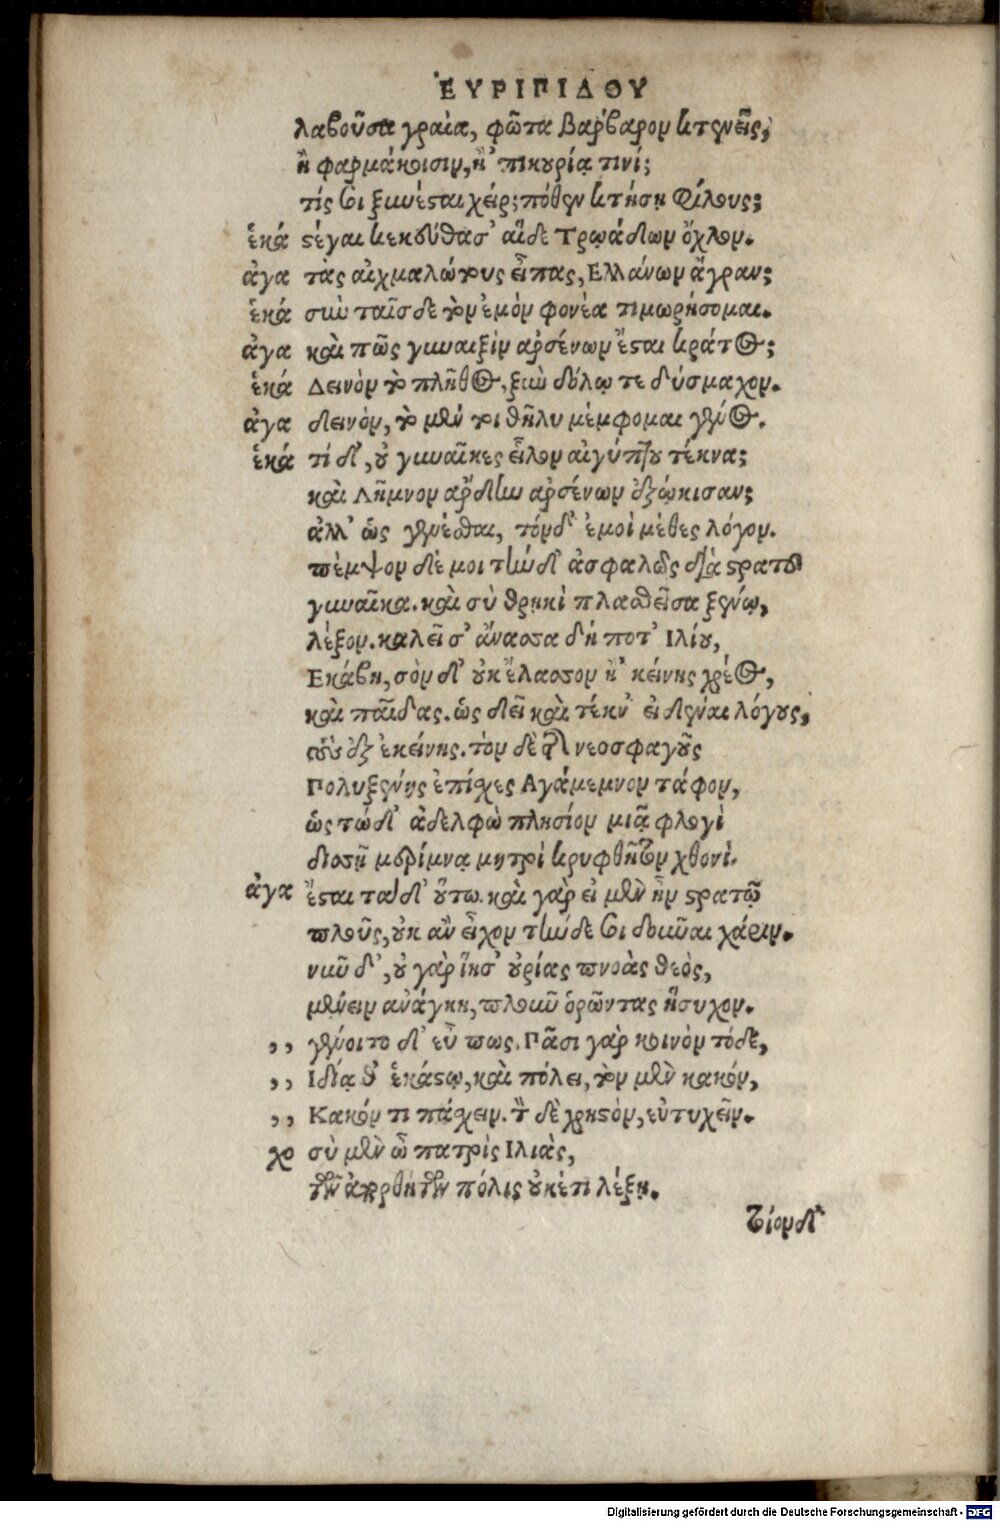 ἘΥΡΙΠΙΔΟΥ
λαβοῦσα γραία, φῶτα βαρβαρον κτενεῖς,
ἢ φαρμάκοισιν, ἢ ’πικουρίᾳ τινί;
τίς σοι ξυνέσται χείρ; πόθεν κτήσῃ φίλους;
ἑκά στέγαι κεκεύθασ’ αἵδε Τρῳάδων ὄχλον.
ἀγα τὰς αἰχμαλώτους εἶπας, Ελλάνων ἄγραν;
ἑκά σὺν ταῖσδε τὸν ἐμὸν φονέα τιμωρήσομαι.
ἀγα καὶ πῶς γυναιξὶν αρσένων ἔσται κράτος;
ἑκά Δεινὸν τὸ πλῆθος, ξὺν δόλῳ τε δύσμαχον.
ἀγα δεινὸν, τὸ μὲν τοι θῆλυ μέμφομαι γένος.
ἑκά τί δ’, οὐ γυναῖκες εἷλον αἰγύπτου τέκνα;
καὶ Λῆμνον αρδην αρσένων ἐξῴκισαν;
ἀλλ’ ὡς γενέσθαι, τόνδ’ ἐμοὶ μέθες λόγον.
πέμψον δέ μοι τὴνδ’ ἀσφαλῶς διὰ στρατοῦ
γυναῖκα. καὶ σὺ θρῃκὶ πλασθεῖσα ξένῳ,
λέξον. καλεῖ σ’ ἄνασσα δή ποτ’ Ιλίου,
Εκάβη, σὸν δ’ οὐκ ἔλασσον ἢ κείνης χρέος,
καὶ παῖδας. ὡς δεῖ καὶ τέκν’ εἰδέναι λόγους,
τοὺς ἐξ ἐκείνης. τὸν δὲ τῆς νεοσφαγοῦς
Πολυξένης ἐπίχες Αγάμεμνον τάφον,
ὡς τώδ’ ἀδελφὼ πλησίον μιᾷ φλογὶ
δισσὴ μερίμνα μητρὶ κρυφθῆτον χθονί.
ἀγα ἔσται ταδ’ οὕτω. καὶ γὰρ εἰ μὲν ἦν στρατῷ
πλοῦς, οὐκ ἂν εἶχον τὴνδε σοι δοῦναι χάριν.
νῦν δ’, οὐ γὰρ ἵησ’ οὐρίας πνοὰς θεὸς,
μένειν ανάγκη, πλοῦν ὁρῶντας ἥσυχον.
,, γένοιτο δ’ εὖ πως. Πᾶσι γὰρ κοινὸν τόδε,
,, Ιδίᾳ θ’ ἑκάστῳ, καὶ πόλει, τὸν μὲν κακόν,
,, Κακόν τι πάχειν. τὸν δὲ χρηστὸν, εὐτυχεῖν.
χο σὺ μὲν ὦ πατρὶς Ιλιὰς,
τῶν ἀπορθήτων πόλις οὐκέτι λέξῃ.
τοῖον δ’
Digitalisierung gefördert durch die Deutsche Forschungsgemeinschaft - DFG